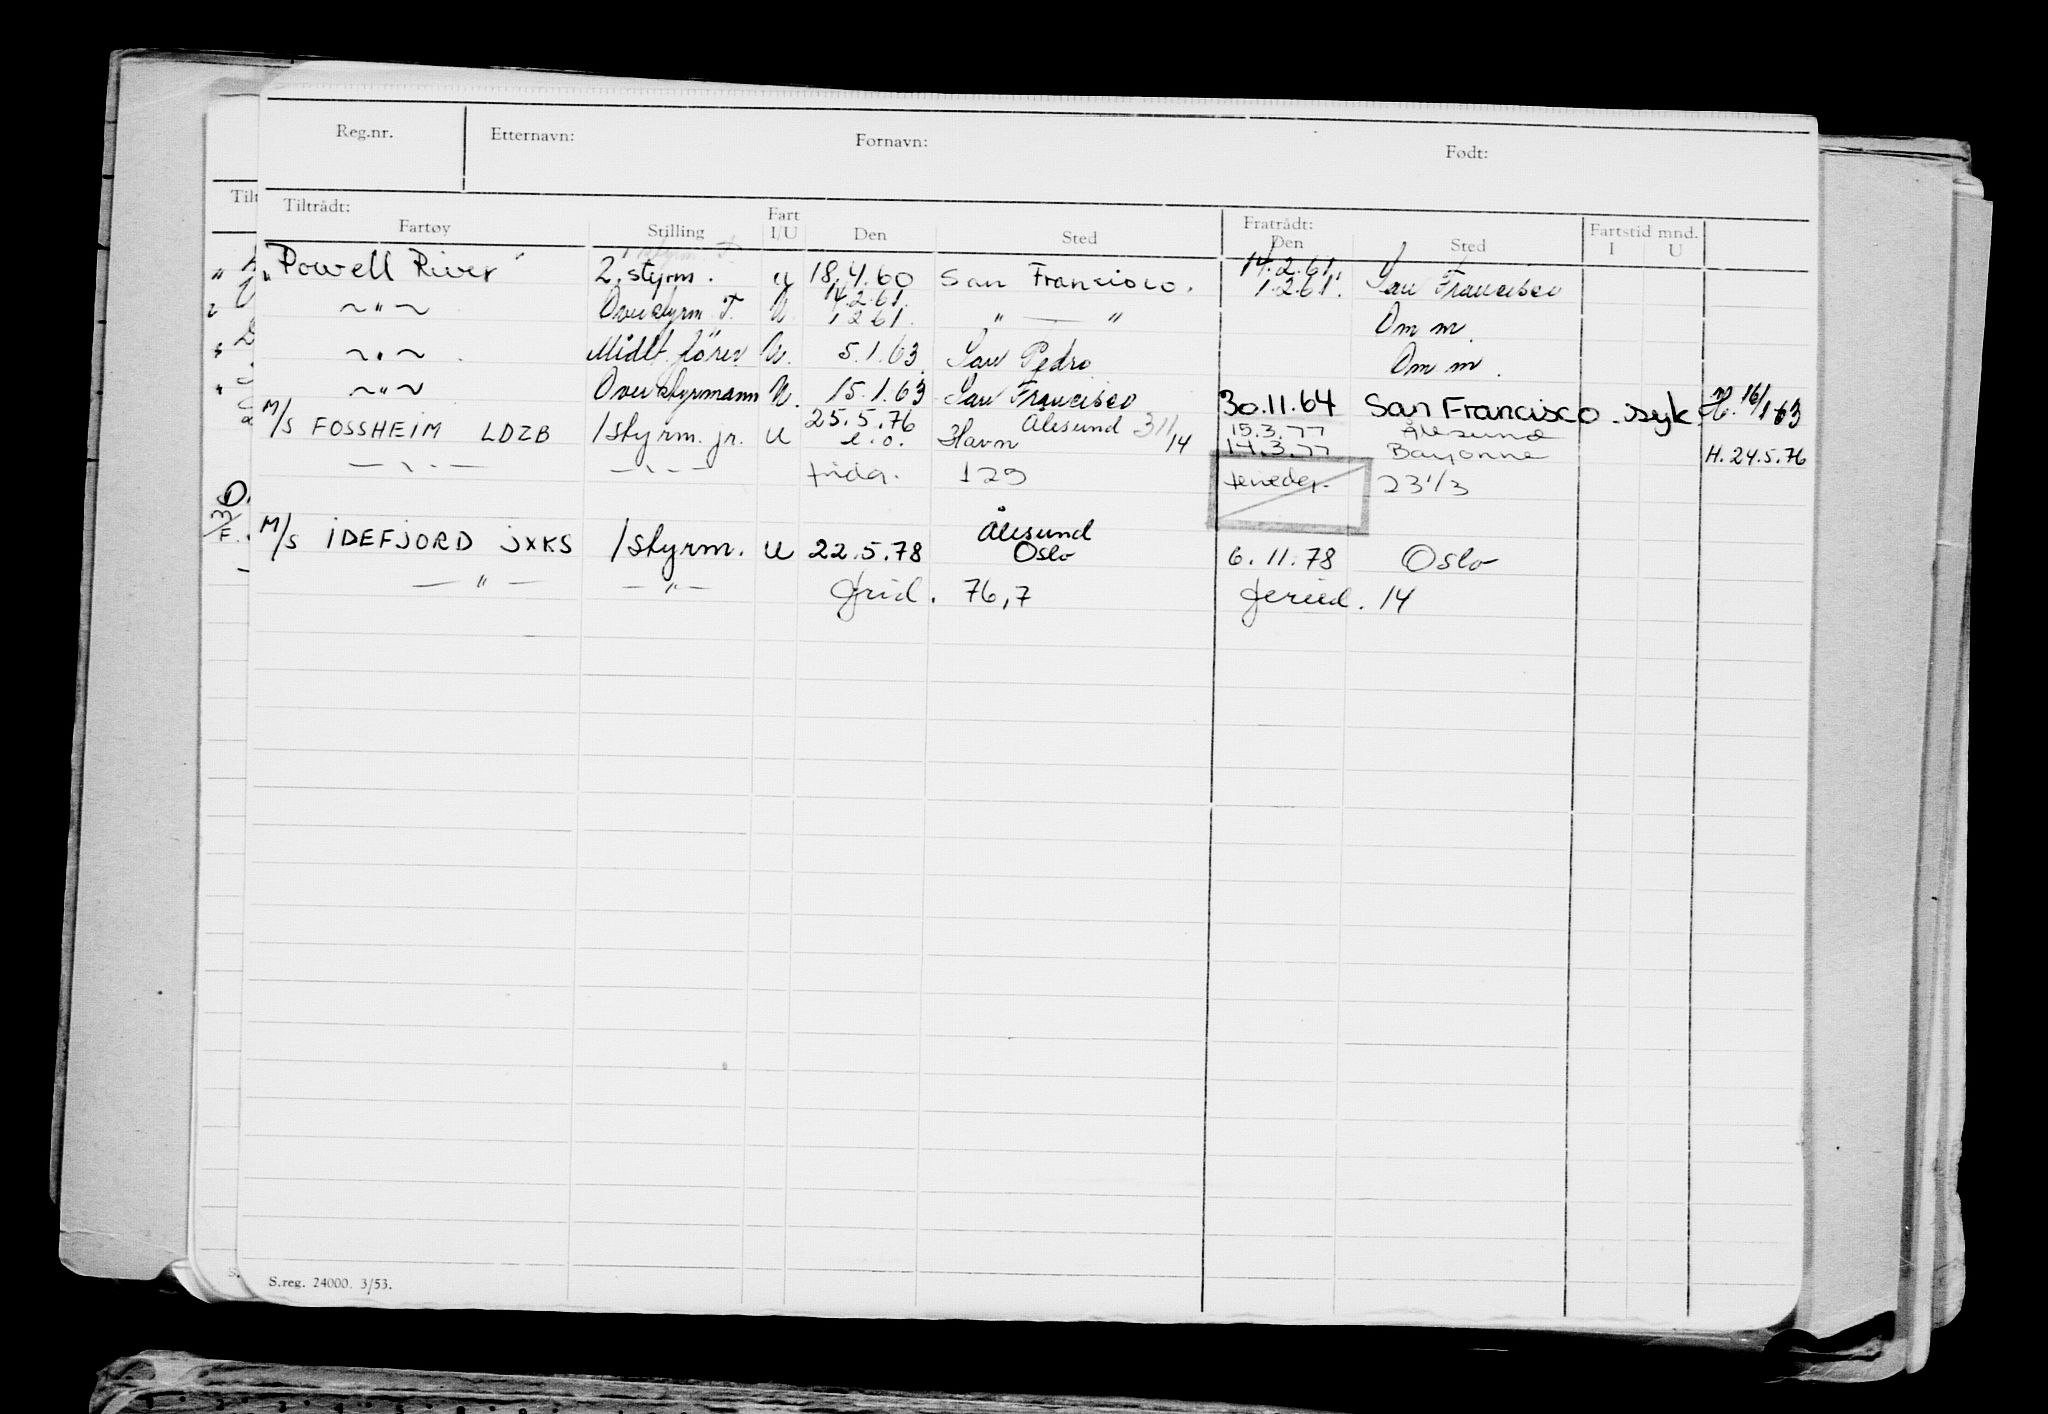 Reg.nr. Etternavn: Fornavn: Født:
Tiltrådt: Fratrådt:
Fartøy Stilling Fart I/U Den Sted Den Sted Fartstid mnd. I U
14.2.61.
"Powell River" 2. styrm. U 18.4.60 San Francisco. 1.2.61. San Francisco
14.2.61.
~"~ Overstyrm. T. U. 1.2.61. " — " Om m.
~"~ Midlt. fører U. 5.1.63 San Pedro Om m.
~"~ Overstyrmann U. 15.1.63 San Francisco 30.11.64 San Francisco. syk. H. 16/1 63
25.5.76 Ålesund 15.3.77 Ålesund
M/S FOSSHEIM LDZB 1 styrm. jr. U e.o. Havn 14.3.77 Bayonne H. 24.5.76
—"— —"— frida. 129 23 1/3
Ålesund
M/S IDEFJORD JXKS 1 styrm. U 22.5.78 Oslo 6.11.78 Oslo
—"— —"— frid. 76,7 feried. 14
S.reg. 24000. 3/53.